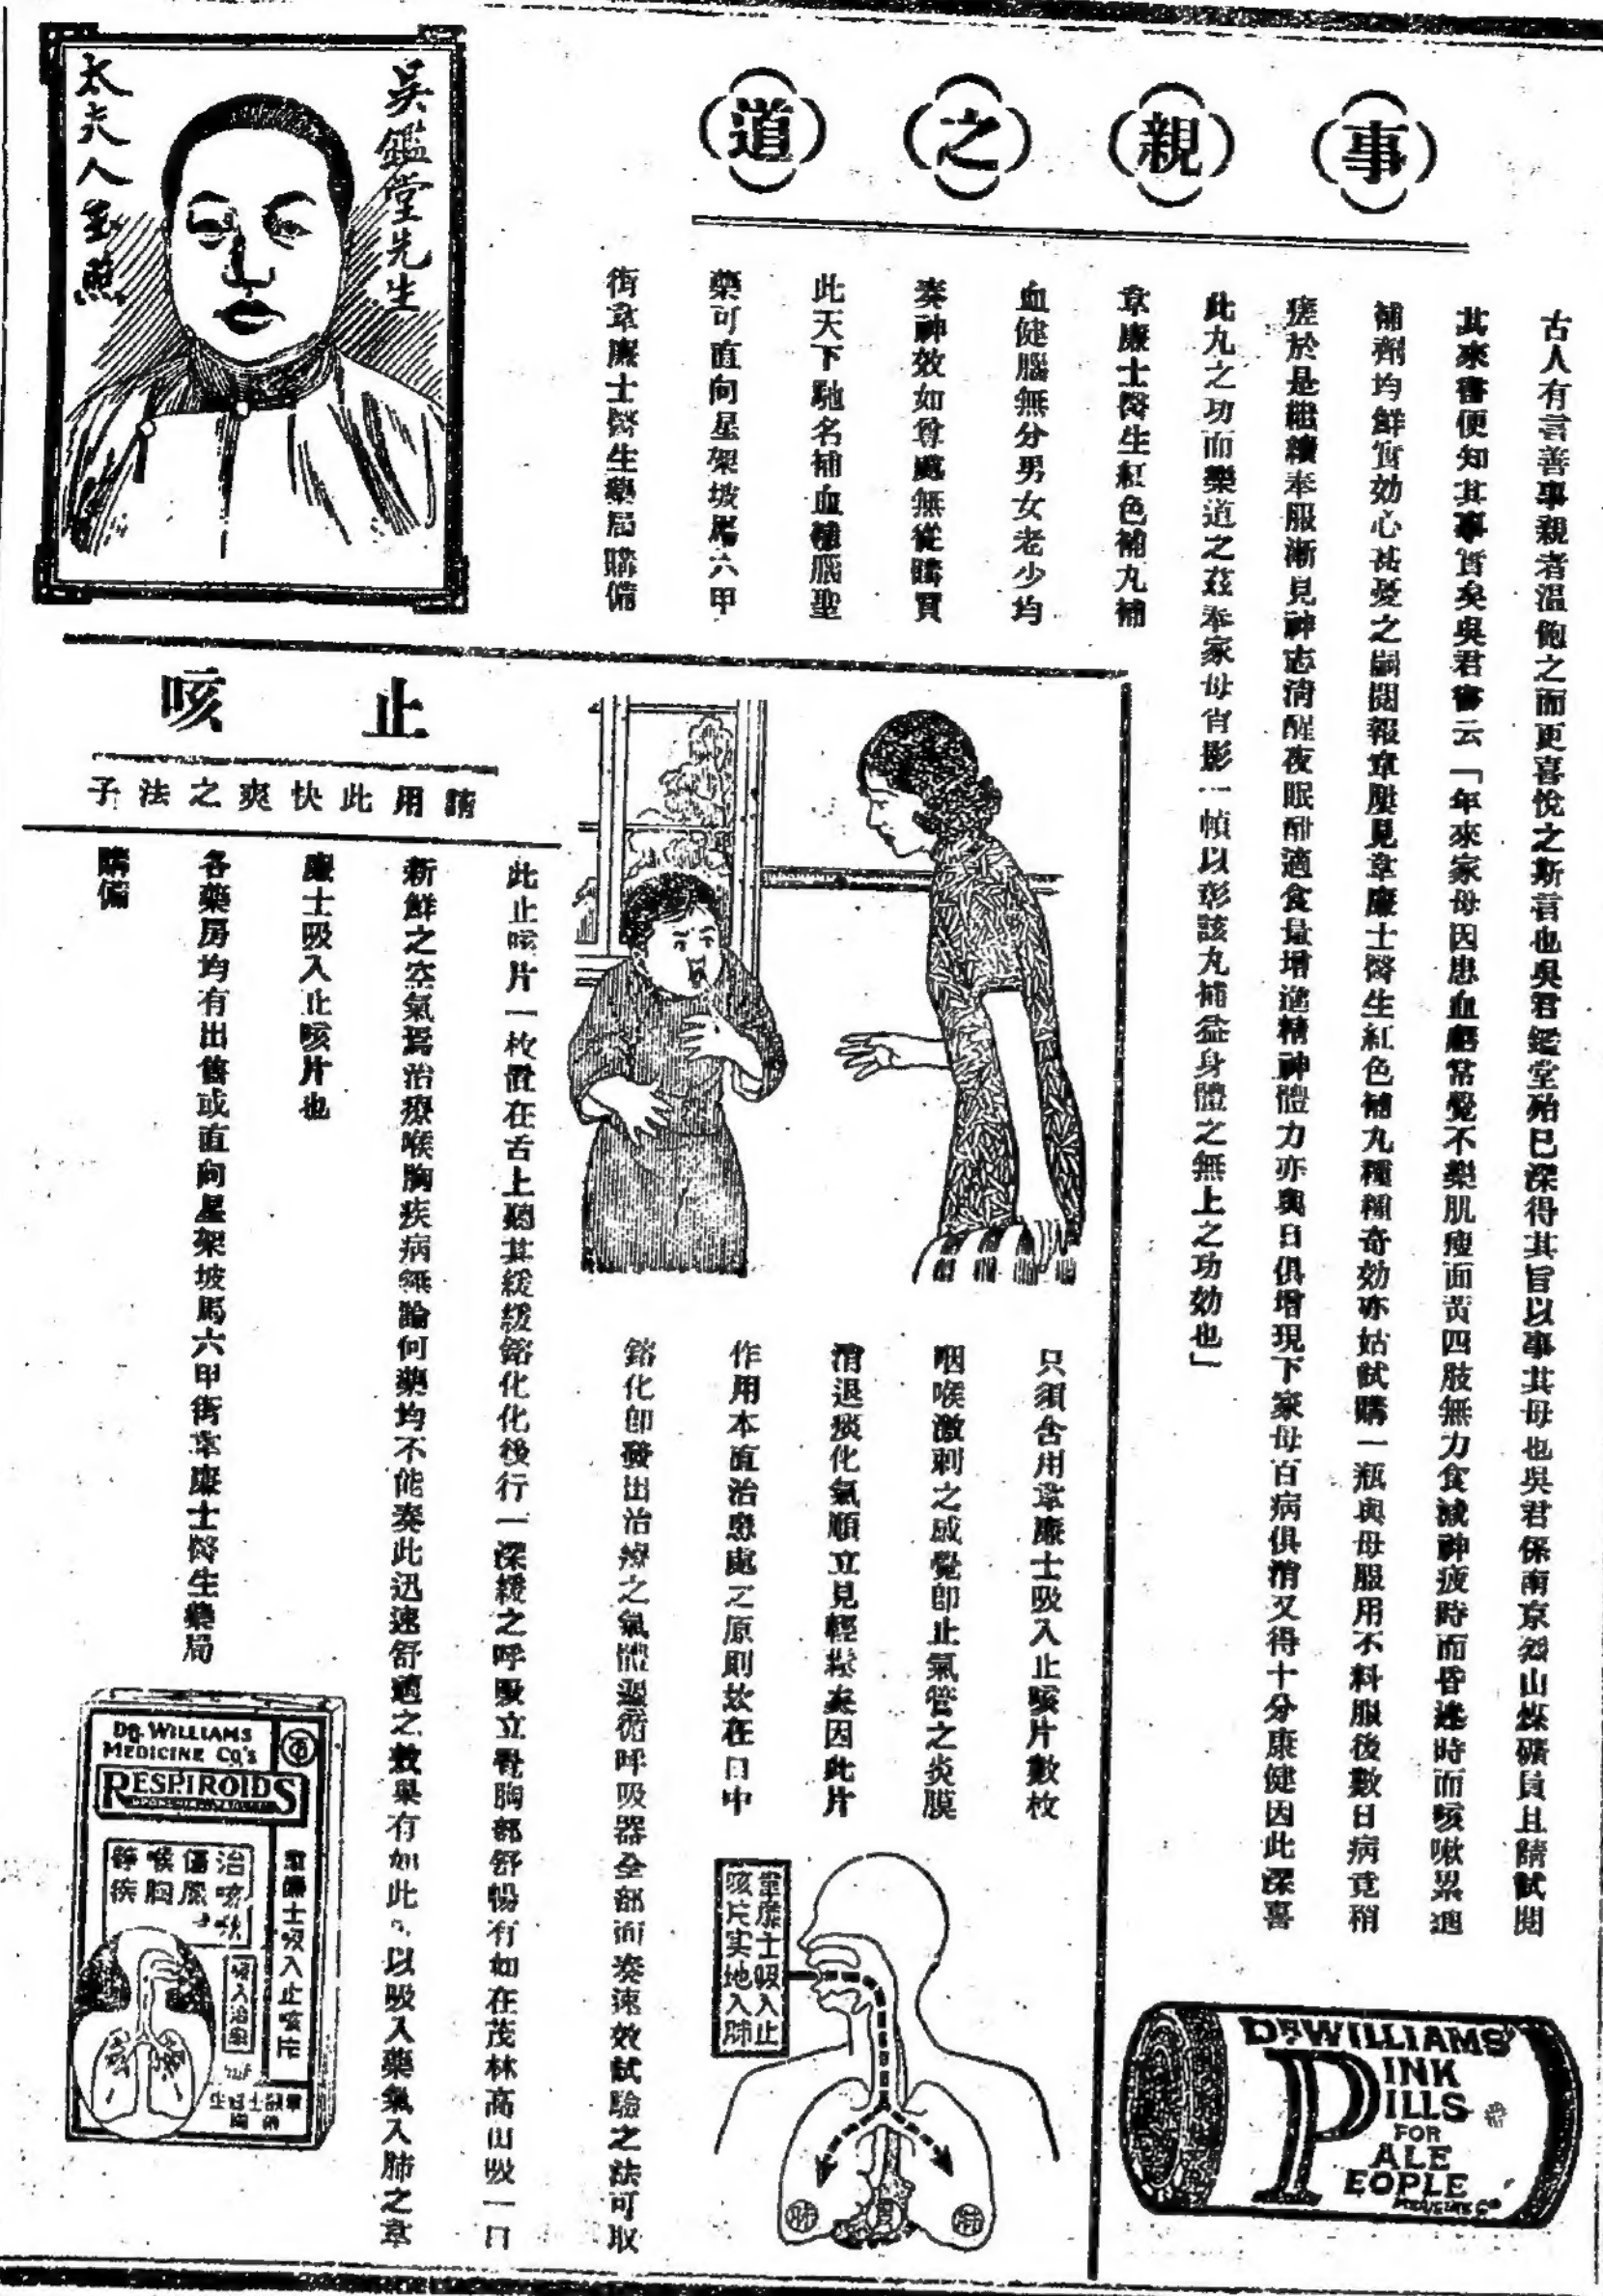 事親之道
吳鑑堂先生
太夫人玉照
古人有言善事親者溫飽之而更喜悅之斯言也吳君鑑堂殆已深得其旨以事其母也吳君係南京烈山煤礦員且請試閱
其來書便知其事實矣吳君書云「年來家母因患血虧常覺不樂肌瘦面黃四肢無力食減神疲時而昏迷時而咳嗽累進
補劑均鮮實効心甚憂之嗣閱報章屢見韋廉士醫生紅色補丸種種奇効亦姑試購一瓶與母服用不料服後數日病竟稍
痊於是繼續奉服漸見神志清醒夜眠酣適食量增進精神體力亦與日俱增現下家母百病俱消又得十分康健因此深喜
此丸之功而樂道之茲奉家母肖影一幀以彰該丸補益身體之無上之功効也」
韋廉士醫生紅色補丸補
血健腦無分男女老少均
奏神效如尊處無從購買
此天下馳名補血補腦聖
藥可直向星架坡馬六甲
街韋廉士醫生藥局購備
DR WILLIAMS'
PINK
PILLS
FOR
PALE
PEOPLE
MEDICINE Co
止咳
請用此快爽之法子
只須含用韋廉士吸入止咳片數枚
咽喉激刺之感覺卽止氣管之炎膜
消退痰化氣順立見輕鬆矣因此片
作用本直治患處之原則故在口中
鎔化卽發出治療之氣體週術呼吸器全部而奏速效試驗之法可取
此止咳片一枚置在舌上聽其緩緩鎔化化後行一深緩之呼吸立覺胸部舒暢有如在茂林高山吸一口
新鮮之空氣焉治療喉胸疾病無論何藥均不能奏此迅速舒適之效果有如此以吸入藥氣入肺之韋
廉士吸入止咳片也
各藥房均有出售或直向星架坡馬六甲街韋廉士醫生藥局
購備
韋廉士吸入止
咳片实地入肺
肺
肺
DR. WILLIAMS
MEDICINE CO.'S
RESPIROIDS
韋廉士吸入止咳片
治咳嗽
傷風
喉胸
等疾
吸入治